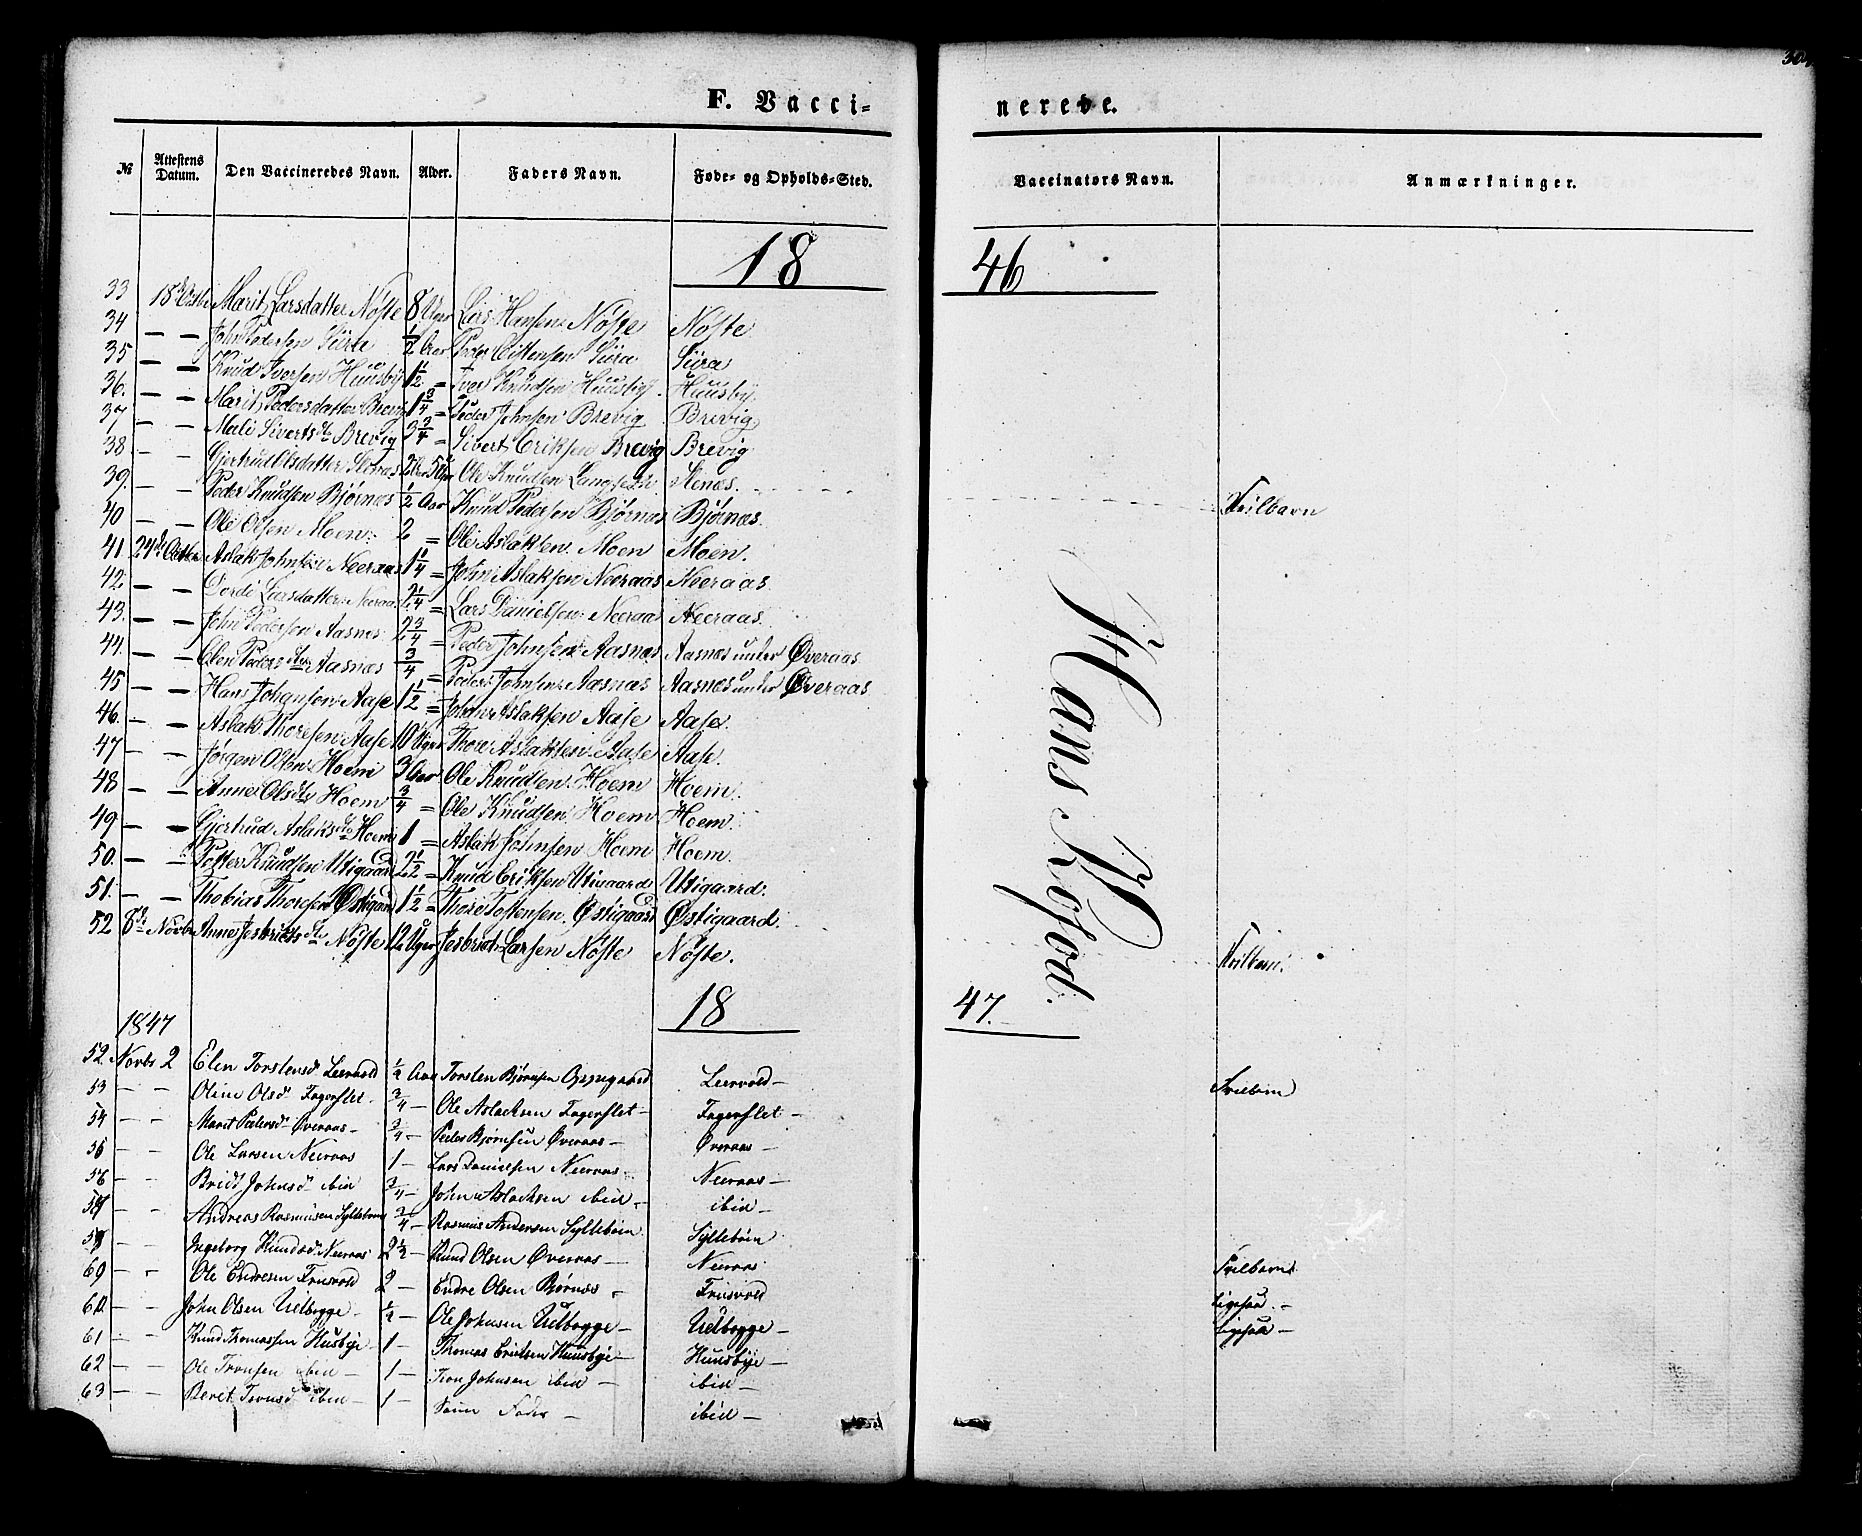 304
F. Vacci=
nereve.
№ Attestens Datum. Den Vaccineredes Navn. Alder. Faders Navn. Føde- og Opholds-Sted. Vaccinators Navn. Anmærkninger.
18 46
33 18de Octbr Marit Larsdatter Nöste 8 Uger Lars Hansen Nöste Nöste
34 — — John Pedersen Siira 1/2 Aar Peder Siira Siira
35 — — Knud Iversen Huusby 1 1/2 = Iver Knudsen Huusby Huusby
36. — — Marit Pedersdatter Brevig 1 3/4 = Peder Johnsen Brevig Brevig
37 — — Mali Siverts Dr Brevig 3 3/4 = Sivert Eriksen Brevig Brevig
38 — — Gjertrud Olsdatter Ole Knudsen Stenæs.
39. — — Peder Knudsen Bjørnæs 1/2 Aar Knud Pedersen Bjørnæs Bjørnæs. Tvilbarn
40 — — Ole Olsen Moen 2 = Ole Aslaksen Moen Moen.
41. 24de Octbr Aslak Johnsen Neeraas 1 1/4 = John Aslaksen Neeraas Neeraas
42. — — Dordi Larsdatter Neeraas 2 1/4 = Lars Danielsen Neeraas Neeraas.
43. — — John Pedersen Aasnes 2 3/4 = Peder Johnsen Aasnæs Aasnæs under Øveraas
44. — — Elen Peders Dtr Aasnæs 3/4 = Peder Johnsen Aasnæs Aasnæs under Øveraas
45 — — Hans Johansen Aase 1 1/2 = Johan Aslaksen Aase Aase.
46. — — Aslak Thoresen Aase 10 Uger Thore Aslaksen Aase Aase.
47 — — Jørgen Olsen Hoem 3 Aar Ole Knudsen Hoem Hoem.
48 — — Anne Olsdtr Hoem 3/4 = Ole Knudsen Hoem Hoem.
49 — — Gjertrud Aslaks Dr Hoem 1 = Aslak Johnsen Hoem Hoem.
50. — — Petter Knudsen Utigaard 2 1/2 = Knud Eriksen Utigaard Utigaard.
51. — — Thobias Thoresen Østigaard 1 1/2 = Thore Tostensen Østigaard Østigaard.
52 8de Novbr Anne Jesbriktsdtr Nöste 12 Uger Jesbrikt Larsen Nöste Nöste. Tvilbarn.
Hans Rofod.
18 47.
1847
52. Novbr 2 Elen Torstensd Leervold 1/2 Aar Torsten Bjørnsen Oppegaard Leervold —
53 — — Oline Olsd Fagerslet 3/4 — Ole Aslacksen Fagerslet — Fagerslet — Tvilbarn
54 — — Marit Pedersd Øveraas — 3/4 — Peder Bjørnsen Øveraas — Øveraas —
55 — — Ole Larsen Neeraas 1 — Lars Danielsen Neeraas Neeraas —
56 — — Bridt Johnsd ibid 3/4 — John Aslacksen ibid — ibid —
57 — — Andreas Rasmusen Syltebøen 3/4 — Rasmus Andersen Syltebøen Syltebøen
58 — — Ingeborg Knudsd Neeraas 2 1/2 — Knud Olsen Øveraas — Neeraas Tvilbarn
69 — — Ole Endresen Frisvold 2 — Endre Olsen Bjørnæs — Frisvold ligesaa —
60 — — John Olsen Uelbogge — 1/2 — Ole Johnsen Uelbogge — Uelbogge — ligesaa —
61 — — Knud Thomassen Husbye — 1 — Thomas Ericksen Huusbye — Huusbye —
62 — — Ole Tronsen ibid — 1 — Tron Johnsen ibid — ibid —
63 — — Beret Tronsd ibid — 1 — Samme Fader — ibid —